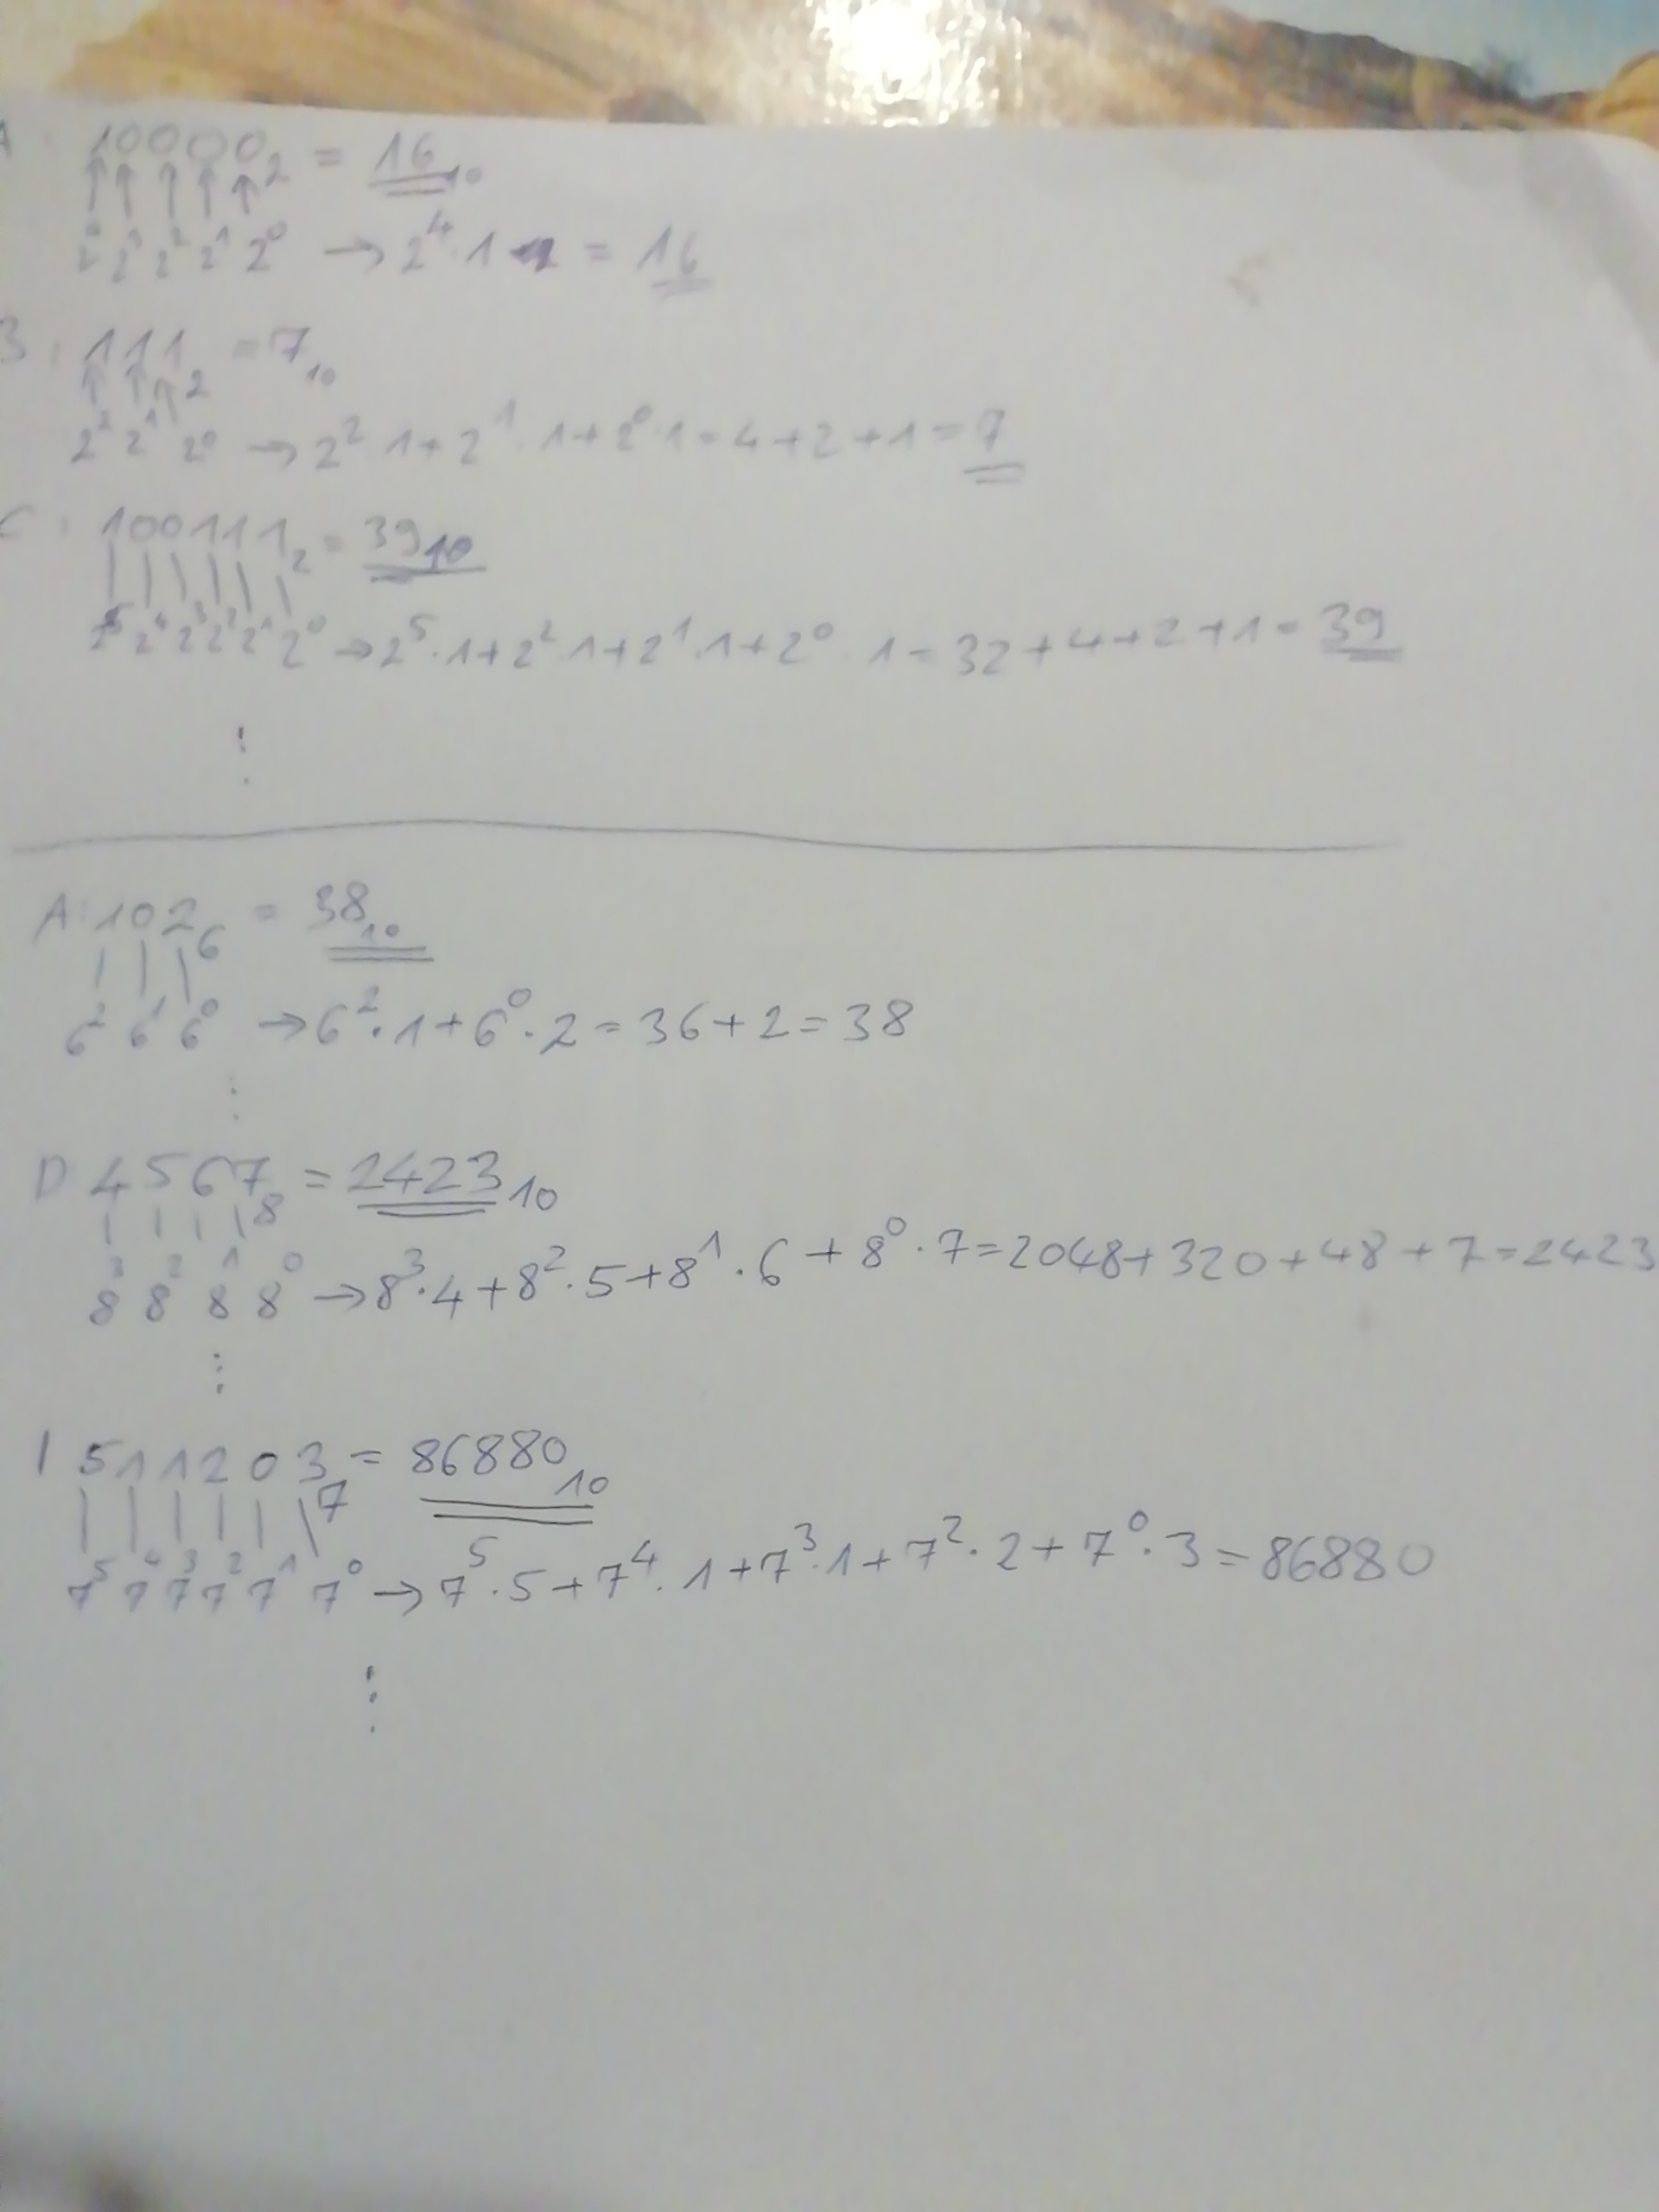 A: 10000₂ = 16₁₀
2⁴ 2³ 2² 2¹ 2⁰ → 2⁴·1 = 16
B: 111₂ = 7₁₀
2² 2¹ 2⁰ → 2²·1+2¹·1+2⁰·1=4+2+1=7
C: 100111₂ = 39₁₀
2⁵ 2⁴ 2³ 2² 2¹ 2⁰ → 2⁵·1+2²·1+2¹·1+2⁰·1=32+4+2+1=39
⋮
A: 102₆ = 38₁₀
6² 6¹ 6⁰ → 6²·1+6⁰·2=36+2=38
⋮
D 4567₈ = 2423₁₀
8³ 8² 8¹ 8⁰ → 8³·4+8²·5+8¹·6+8⁰·7=2048+320+48+7=2423
⋮
I 511203₇ = 86880₁₀
7⁵ 7⁴ 7³ 7² 7¹ 7⁰ → 7⁵·5+7⁴·1+7³·1+7²·2+7⁰·3=86880
⋮